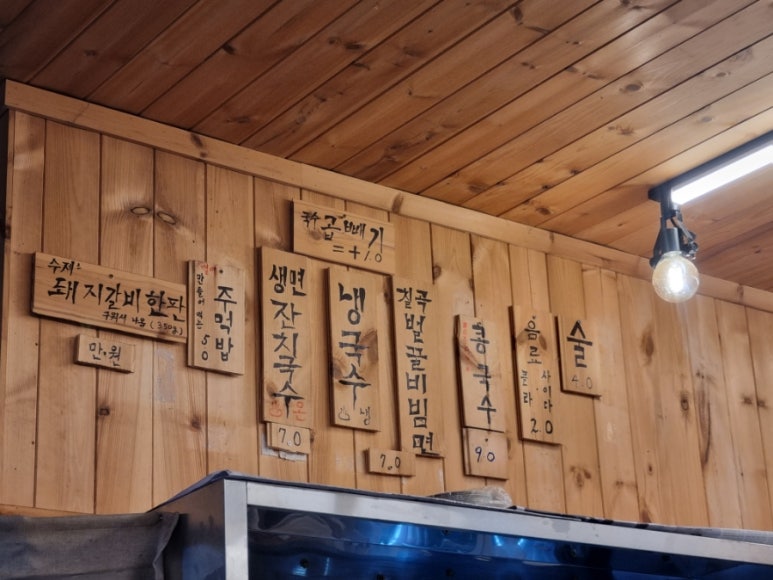 수제
돼지갈비한판
구워서 나옴 (350g)
만원
만들어 먹는
주먹밥
50
국수 곱빼기
=+1.0
생면
잔치국수
온
7.0
냉국수
냉
칡죽
벌꿀비빔면
7.0
콩국수
90
음료
콜라
사이다
20
술
4.0